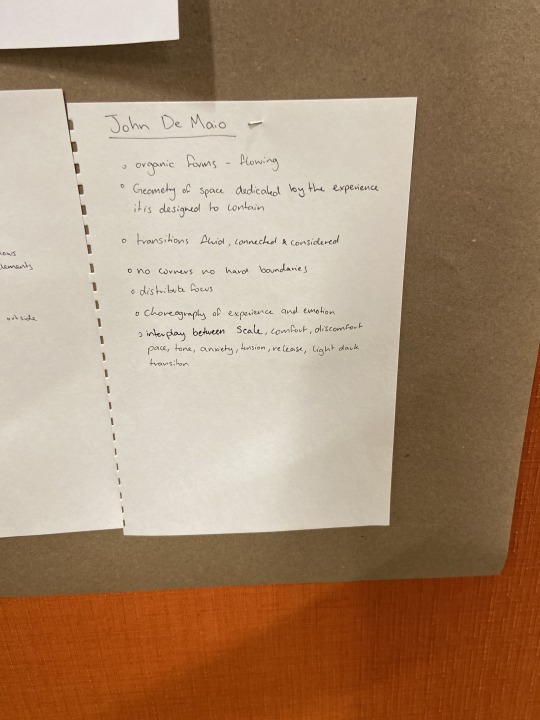 John De Maio
organic forms - flowing
Geometry of space dedicated by the experience
it is designed to contain
transitions fluid, connected & considered
no corners no hard boundaries
distribute focus
Choreography of experience and emotion
interplay between Scale, comfort, discomfort
pace, tone, anxiety, tension, release, light dark
transition
outside